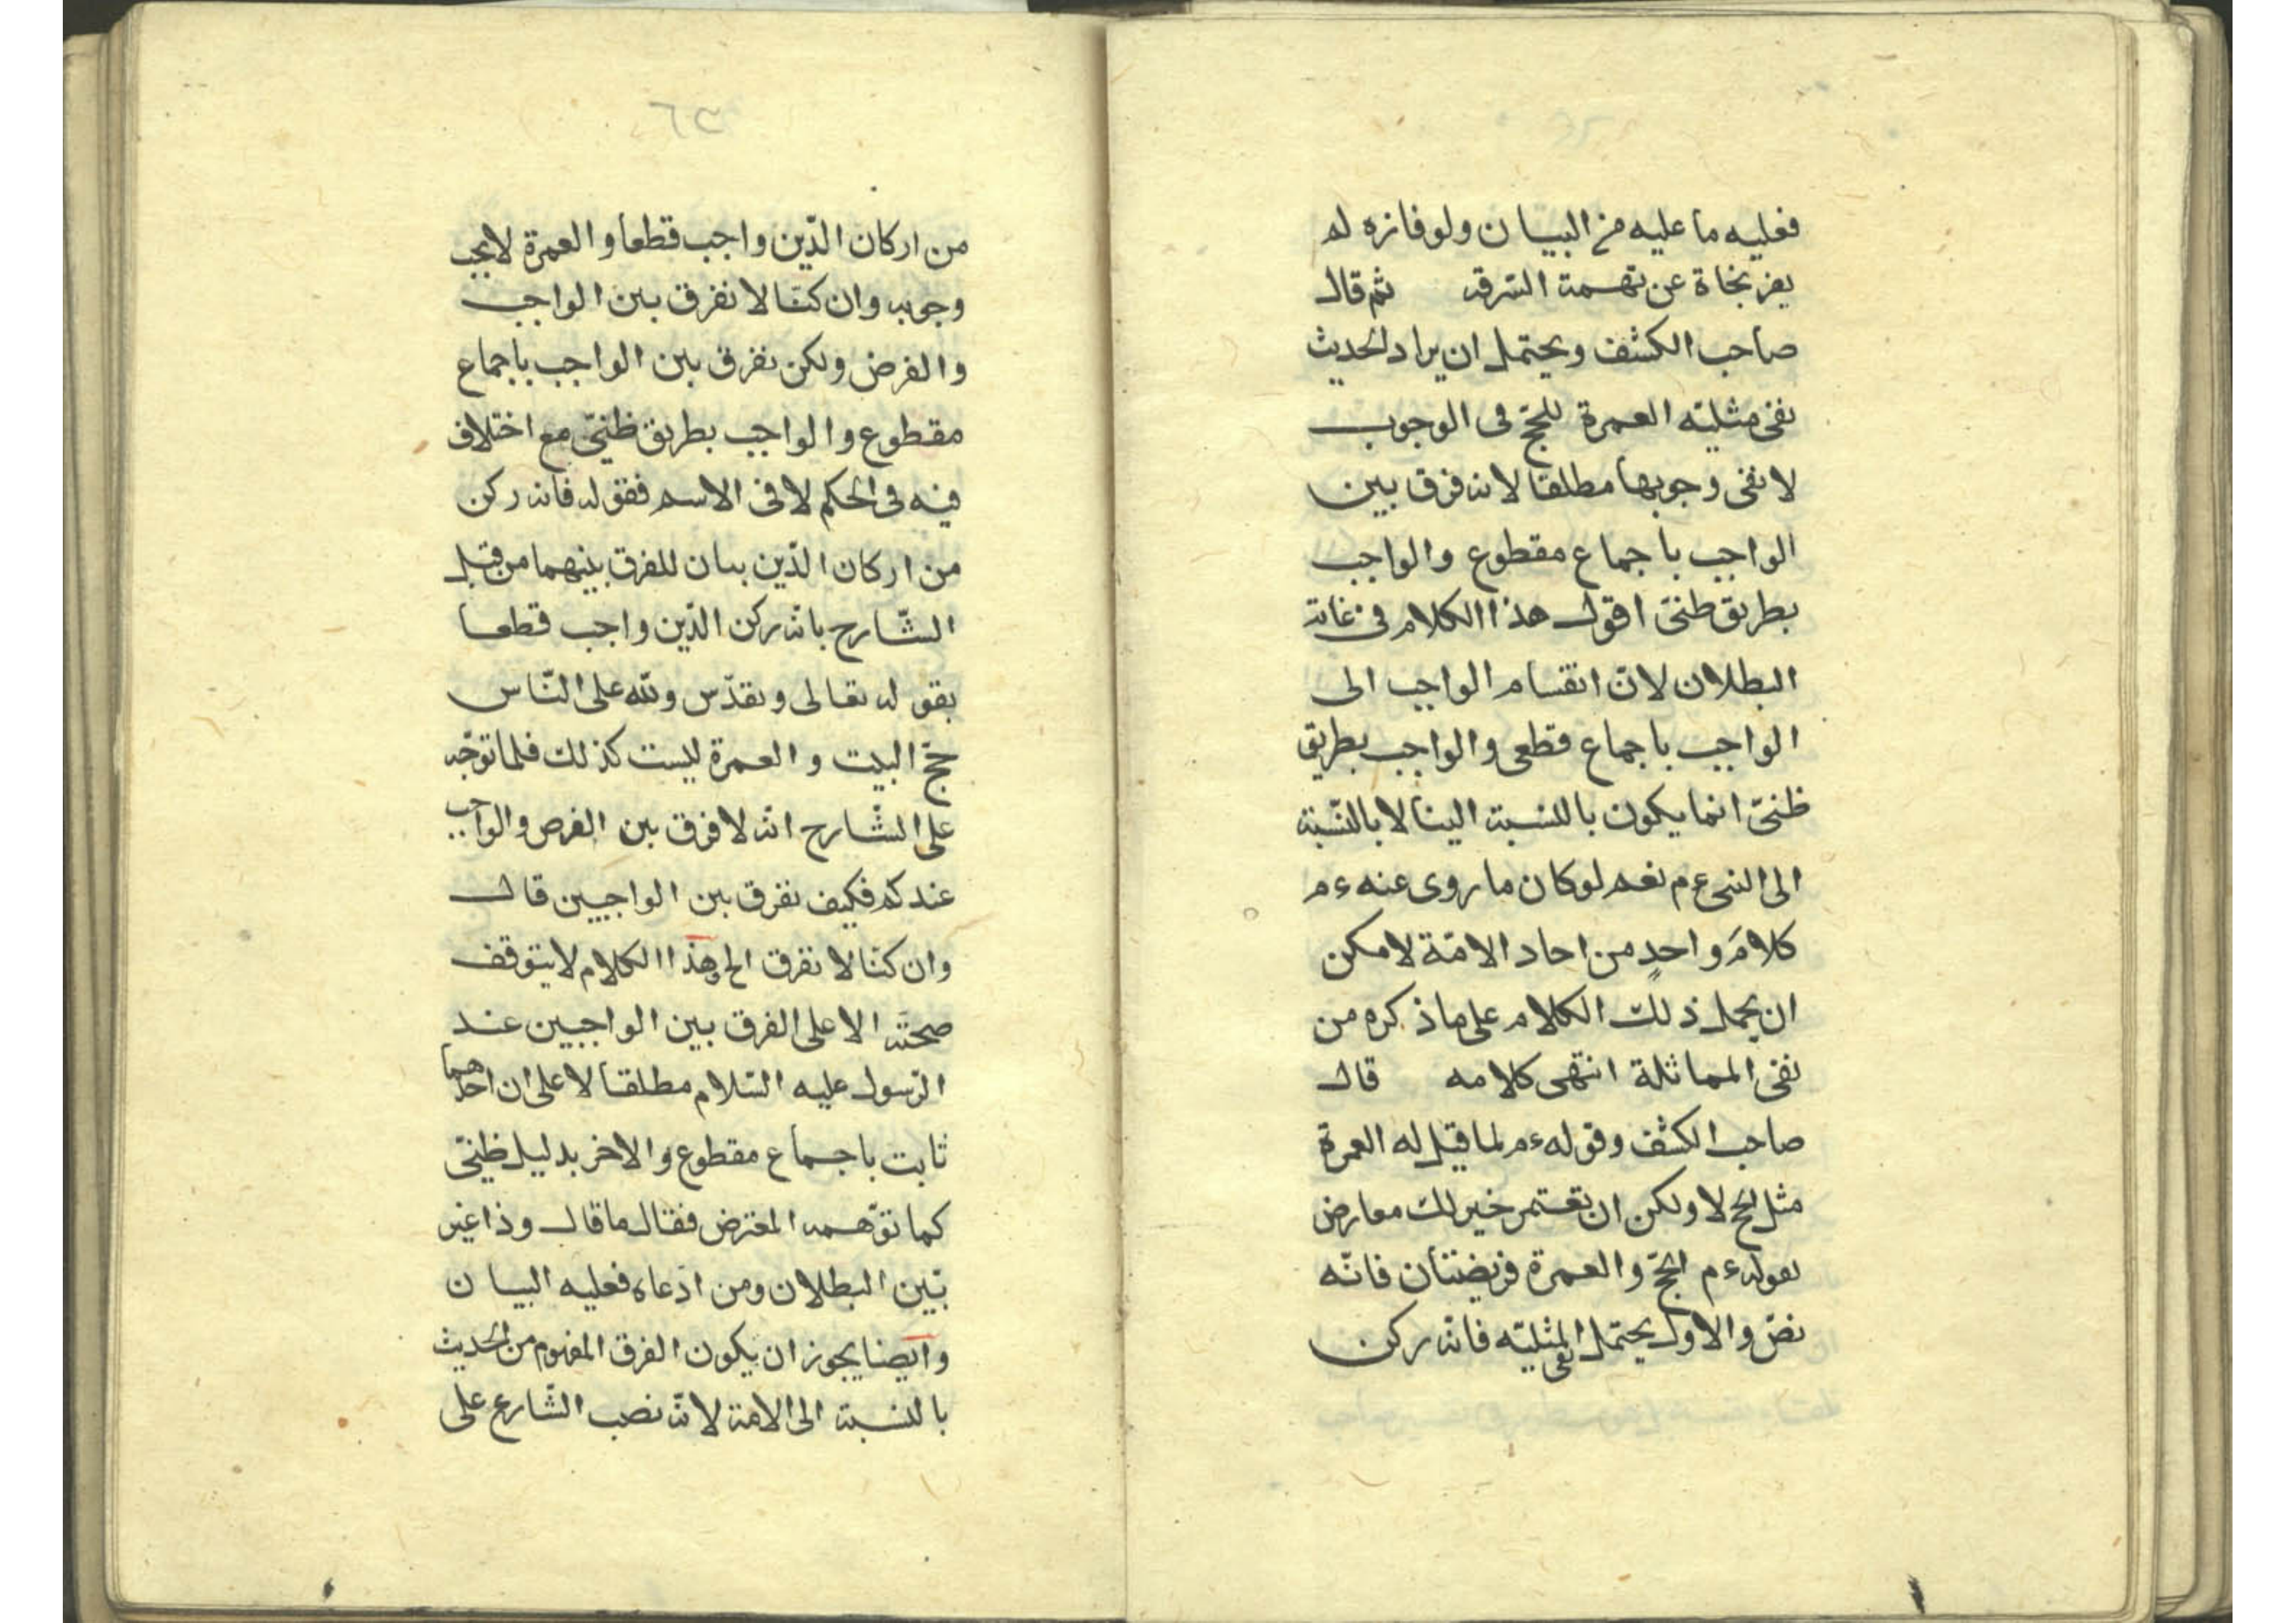 فعليه ما عليه من البيان ولو فازه لم
يفز بنجاة عن تهمة السّرقة ثم قال
صاحب الكشف ويحتمل ان يراد الحديث
نفى مثليّه العمرة للحجّ فى الوجوب
لا نفى وجوبها مطلقا لانه فرق بين
الواجب باجماع مقطوع والواجب
بطريق ظنىّ اقول هذا الكلام فى غاية
البطلان لانّ انقسام الواجب الى
الواجب باجماع قطعى والواجب بطريق
ظنىّ انما يكون بالنسبة الينا لا بالنّسبة
الى النبى ع م نعم لو كان ما روى عنه ء م
كلامَ واحدٍ من احاد الامّة لامكن
ان يحمل ذلك الكلام على ما ذكره من
نفى المماثلة انتهى كلامه قال
صاحب الكشف وقوله ء م لما قيل له العمرة
مثل الحج لا ولكن ان تعتمر خير لك معارض
بقوله ء م الحجّ والعمرة فريضتان فانّه
نصّ والاول يحتمل نفى المثليّه فانّه ركن
٦٣
من اركان الدّين واجب قطعا والعمرة لا يجب
وجوبه وان كنّا لا نفرق بين الواجب
والفرض ولكن نفرق بين الواجب باجماع
مقطوع والواجب بطريق ظنىّ مع اختلاف
فيه فى الحكم لا فى الاسم فقوله فانه ركن
من اركان الدّين بيان للفرق بينهما من قبل
الشّارح بانّه ركن الدّين واجب قطعا
بقوله تعالى وتقدّس ولله على النّاس
حجّ البيت والعمرة ليست كذلك فلما توجّه
على الشّارح انّه لا فرق بين الفرض والواجب
عندكم فكيف نفرق بين الواجبين قال
وان كنّا لا نفرق الخ وهذا الكلام لا يتوقف
صحّته الا على الفرق بين الواجبين عند
الرّسول عليه السّلام مطلقا لا على ان احدهما
ثابت باجماع مقطوع والاخر بدليل ظنىّ
كما توّهمه المعترض فقال ما قال وذا غير
بيّن البطلان ومن ادّعاه فعليه البيان
وايضا يجوز ان يكون الفرق المفهوم من الحديث
بالنسبة الى الامة لانّه نصب الشّارع على